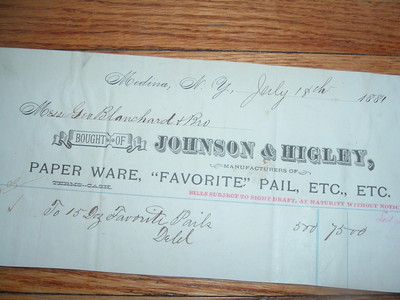 Medina, N.Y., July 18th 1881
Mess Geo Blanchard & Bro
BOUGHT OF JOHNSON & HIGLEY,
MANUFACTURERS OF
PAPER WARE, "FAVORITE" PAIL, ETC., ETC.
TERMS CASH.
BILLS SUBJECT TO SIGHT DRAFT, AT MATURITY WITHOUT NOTICE
To 15 Dz Favorite Pails 500 7500
Deld